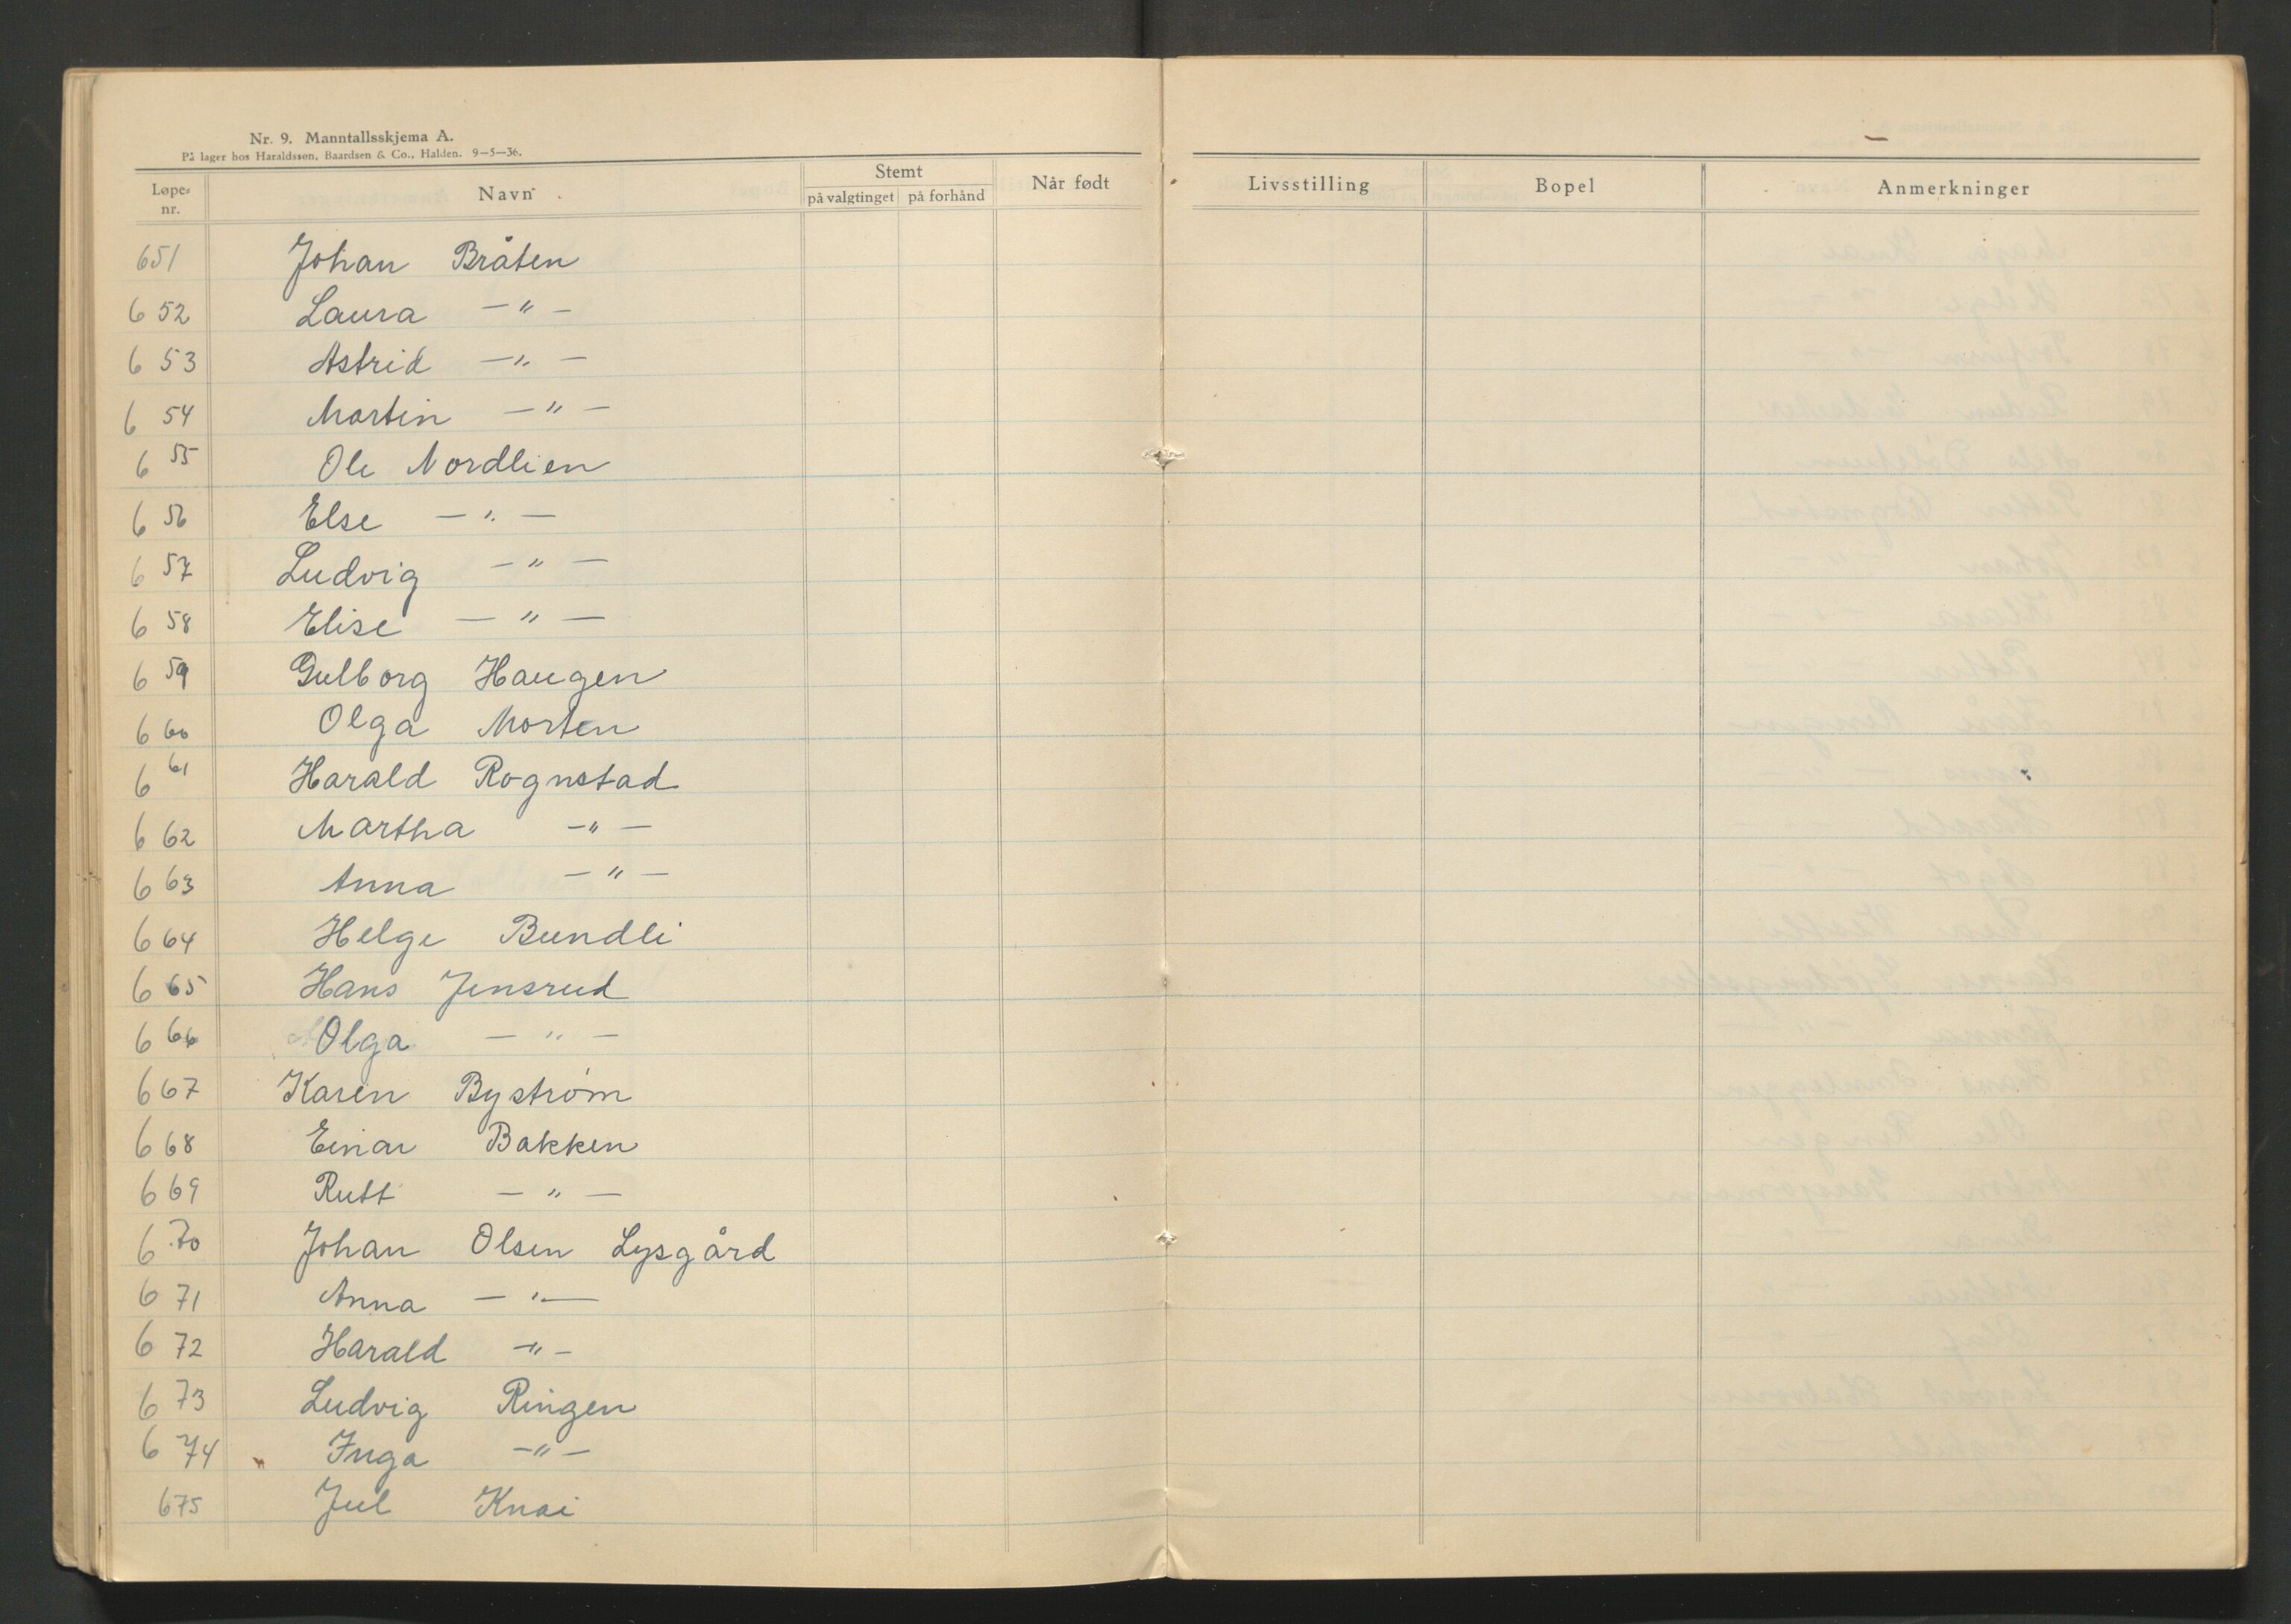 Nr. 9. Manntallsskjema A.
På lager hos Haraldssøn, Baardsen & Co., Halden. 9—5—36.
Løpe-nr. Navn Stemt på valgtinget på forhånd Når født Livsstilling Bopel Anmerkninger
651 Johan Bråten
652 Laura —"—
653 Astrid —"—
654 Martin —"—
655 Ole Nordlien
656 Else —"—
657 Ludvig —"—
658 Elise —"—
659 Gulborg Haugen
660 Olga Morten
661 Harald Rognstad
662 Martha —"—
663 Anna —"—
664 Helge Bundli
665 Hans Jensrud
666 Olga —"—
667 Karen Bystrøm
668 Einar Bakken
669 Rutt —"—
670 Johan Olsen Lysgård
671 Anna —"—
672 Harald —"—
673 Ludvig Ringen
674 Inga —"—
675 Jul Knai